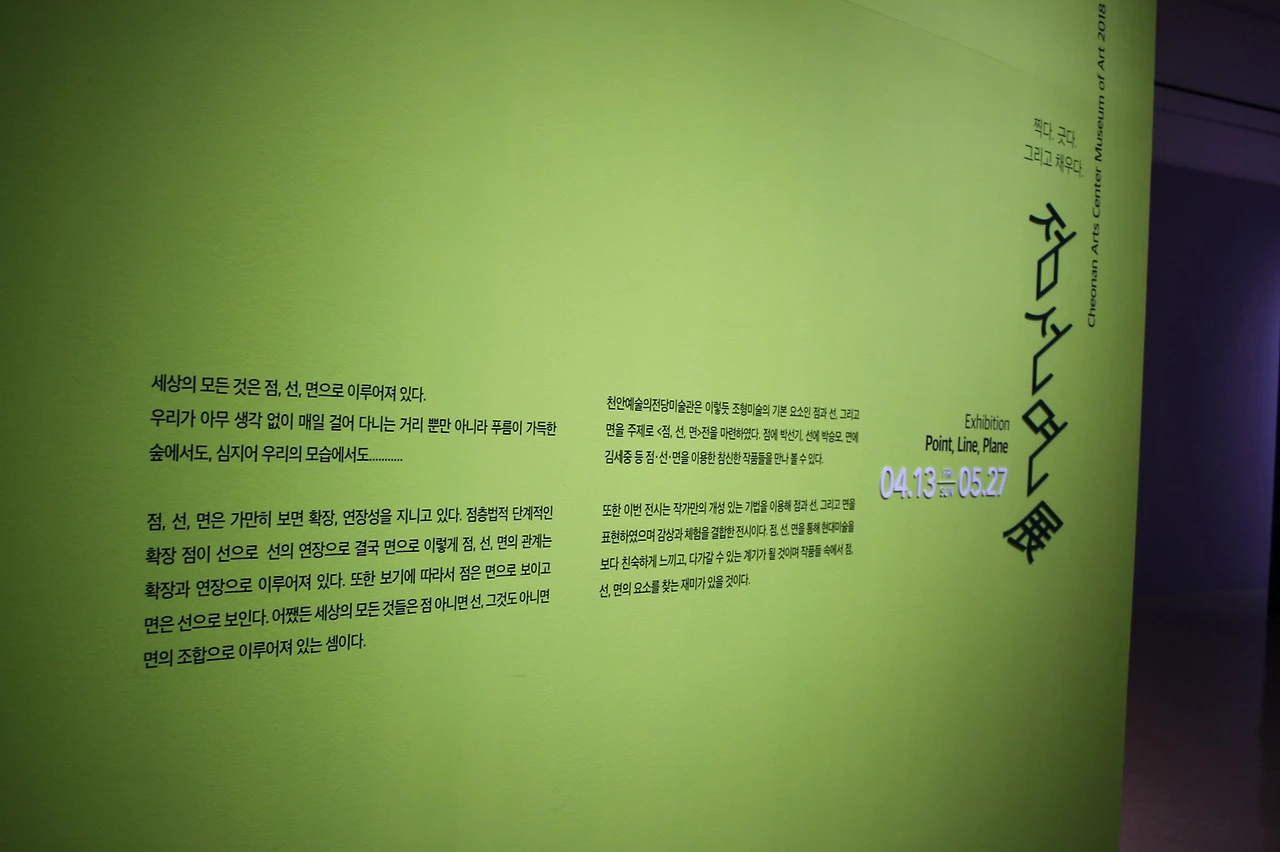 세상의 모든 것은 점, 선, 면으로 이루어져 있다.
우리가 아무 생각 없이 매일 걸어 다니는 거리 뿐만 아니라 푸름이 가득한
숲에서도, 심지어 우리의 모습에서도..........
점, 선, 면은 가만히 보면 확장, 연장성을 지니고 있다. 점층법적 단계적인
확장 점이 선으로 선의 연장으로 결국 면으로 이렇게 점, 선, 면의 관계는
확장과 연장으로 이루어져 있다. 또한 보기에 따라서 점은 면으로 보이고
면은 선으로 보인다. 어쨌든 세상의 모든 것들은 점 아니면 선, 그것도 아니면
면의 조합으로 이루어져 있는 셈이다.
천안예술의전당미술관은 이렇듯 조형미술의 기본 요소인 점과 선, 그리고
면을 주제로 <점, 선, 면>전을 마련하였다. 점에 박선기, 선에 박승모, 면에
김세중 등 점·선·면을 이용한 참신한 작품들을 만나 볼 수 있다.
또한 이번 전시는 작가만의 개성 있는 기법을 이용해 점과 선, 그리고 면을
표현하였으며 감상과 체험을 결합한 전시이다. 점, 선, 면을 통해 현대미술을
보다 친숙하게 느끼고, 다가갈 수 있는 계기가 될 것이며 작품들 속에서 점,
선, 면의 요소를 찾는 재미가 있을 것이다.
Exhibition
Point, Line, Plane
04.13 FRI SUN 05.27
찍다. 긋다.
그리고 채우다.
점선면展
Cheonan Arts Center Museum of Art 2018